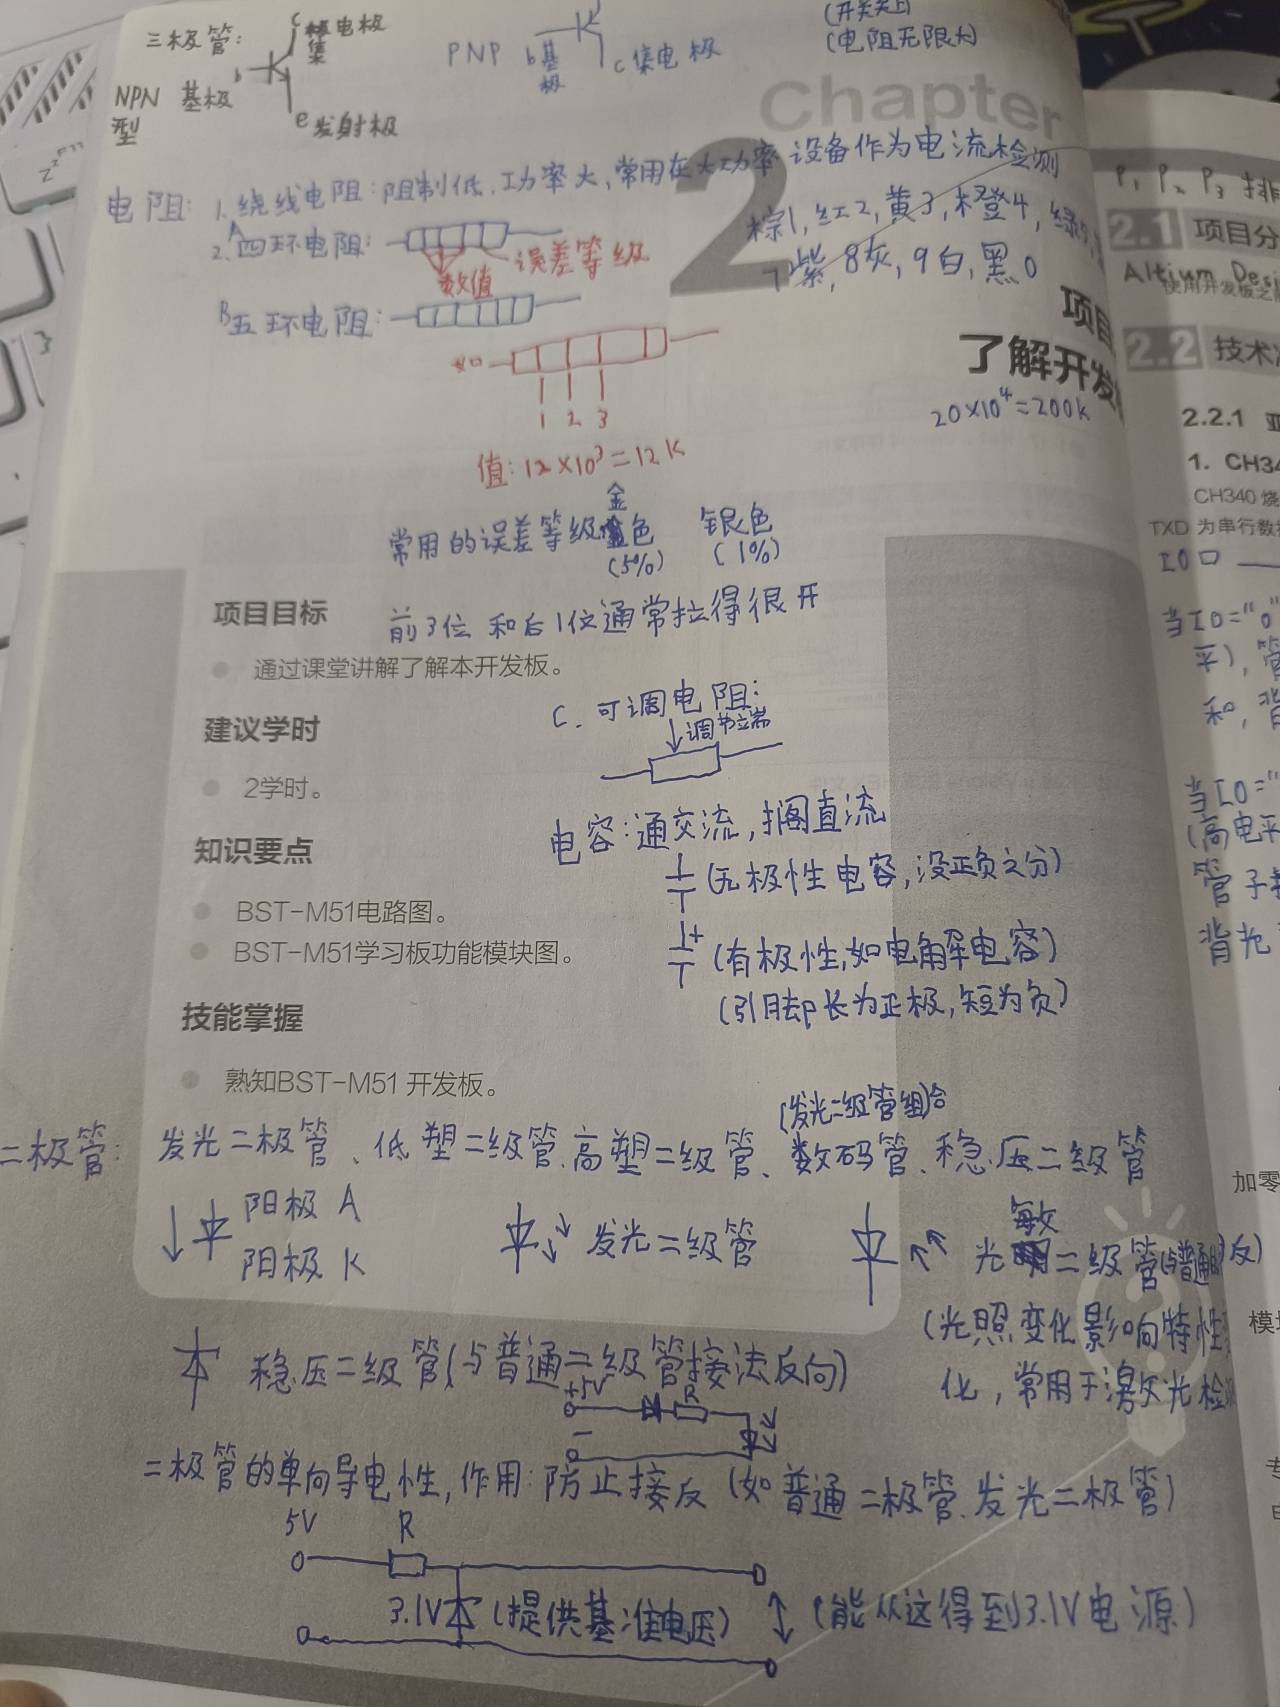 三极管:
c
集电极
b
NPN 基极
型
e发射极
PNP b基极
c集电极
(开关关上)
(电阻无限大)
Chapter
2
电阻: 1.绕线电阻:阻制低,功率大,常用在大功率设备作为电流检测
2.A四环电阻:
数值
误差等级
棕1,红2,黄3,橙4,绿5,
7紫,8灰,9白,黑0
B五环电阻:
1 2 3
值:12×10³=12K
项目
了解开发
20×10⁴=200K
常用的误差等级金色 银色
(5%) (1%)
前3位和后1位通常拉得很开
项目目标
通过课堂讲解了解本开发板。
建议学时
2学时。
知识要点
BST-M51电路图。
BST-M51学习板功能模块图。
技能掌握
熟知BST-M51 开发板。
C.可调电阻:
调节端
电容:通交流,搁直流
(无极性电容,没正负之分)
+
(有极性,如电解电容)
(引脚长为正极,短为负)
(发光二级管组合)
二极管: 发光二极管、低塑二级管、高塑二级管、数码管、稳压二级管
阳极 A
阳极 K
发光二级管
光敏二级管(与普通的反)
(光照变化影响特性
化,常用于激光检
稳压二级管(与普通二级管接法反向)
+5V
R
-
二极管的单向导电性,作用:防止接反(如普通二极管、发光二极管)
5V R
3.1V (提供基准电压)
(能从这得到3.1V电源)
P₁ P₂ P₃ 排
2.1 项目分
Altium Desi
使用开发板之
2.2 技术
2.2.1
1. CH34
CH340 烧
TXD 为串行数
IO口
当IO="0"
平),管
和,背
当IO="
(高电平
管子
背光
加零
模